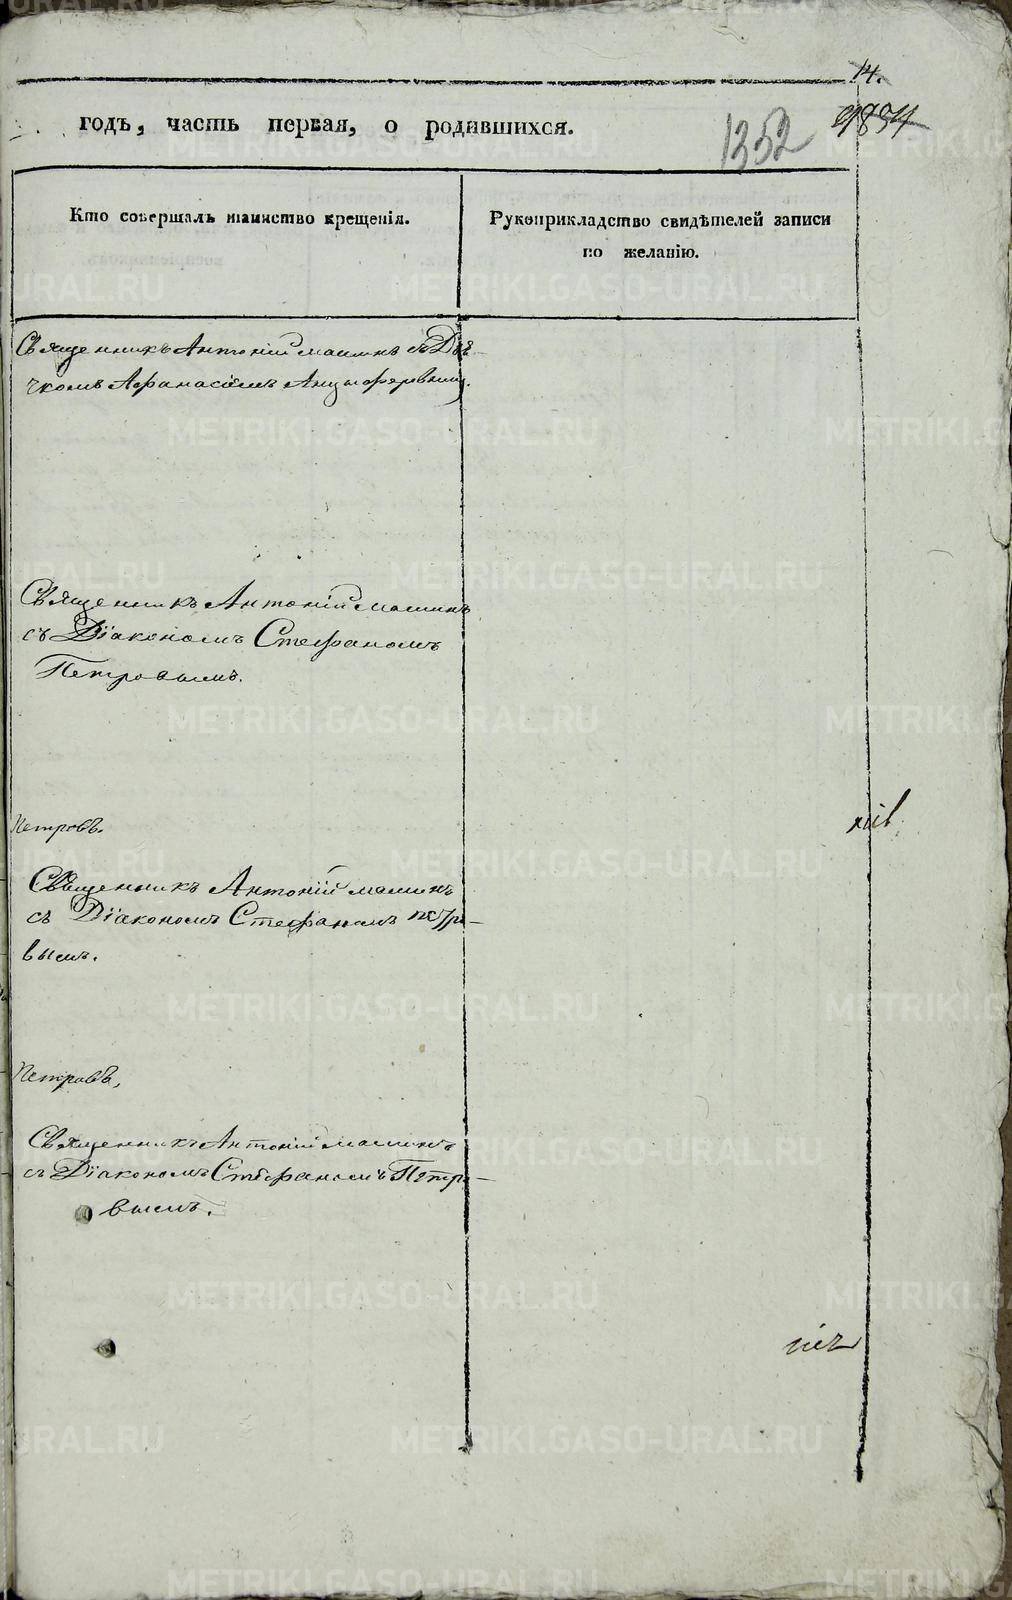 14.
годъ, часть первая, о родившихся.
1352
Кто совершалъ таинство крещенія.
Рукоприкладство свидѣтелей записи
по желанію.
Священникъ Антоній Мамин съ Дья-
чкомъ Афанасіемъ Анцыферовым.
Священникъ Антоній Маминъ
съ Діакономъ Стефаномъ
Петровымъ.
Петровъ.
Священникъ Антоній Маминъ
съ Діакономъ Стефаномъ Петро-
вымъ.
Петровъ,
Священникъ Антоній Маминъ
съ Діакономъ Стефаномъ Петро-
вымъ.
METRIKI.GASO-URAL.RU